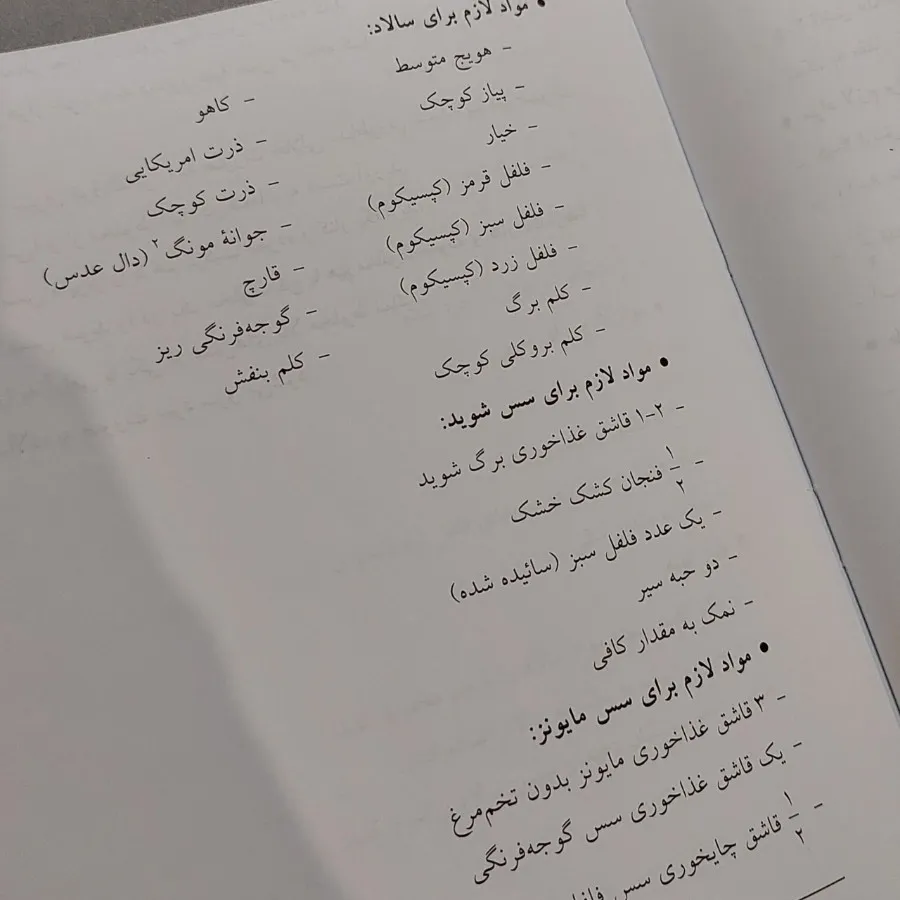 • مواد لازم برای سالاد:
- هویج متوسط
- پیاز کوچک
- خیار
- فلفل قرمز (کپسیکوم)
- فلفل سبز (کپسیکوم)
- فلفل زرد (کپسیکوم)
- کلم برگ
- کلم بروکلی کوچک
- کاهو
- ذرت امریکایی
- ذرت کوچک
- جوانهٔ مونگ۲ (دال عدس)
- قارچ
- گوجه‌فرنگی ریز
- کلم بنفش
• مواد لازم برای سس شوید:
- ۱-۲ قاشق غذاخوری برگ شوید
- ۱/۲ فنجان کشک خشک
- یک عدد فلفل سبز (سائیده شده)
- دو حبه سیر
- نمک به مقدار کافی
• مواد لازم برای سس مایونز:
- ۳ قاشق غذاخوری مایونز بدون تخم‌مرغ
- یک قاشق غذاخوری سس گوجه‌فرنگی
- ۱/۲ قاشق چایخوری سس